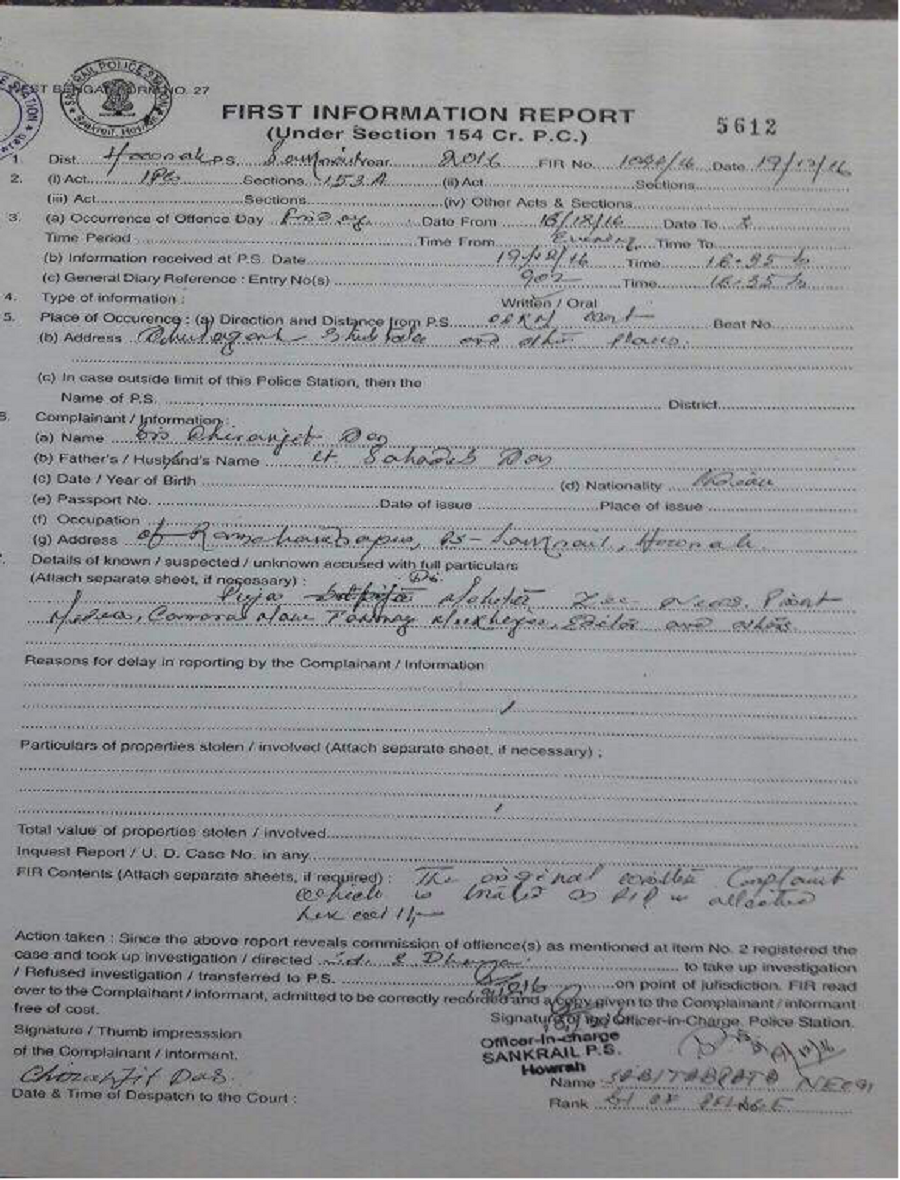 SANKRAIL POLICE STATION
Sankrail, Howrah
WEST BENGAL FORM NO. 27
FIRST INFORMATION REPORT
(Under Section 154 Cr. P.C.)
5612
1. Dist. Howrah P.S. Sankrail Year 2016 FIR No. Date 19/12/16
2. (i) Act IPC Sections 153A (ii) Act Sections
(iii) Act Sections (iv) Other Acts & Sections
3. (a) Occurrence of Offence Day Date From Date To
Time Period Time From Evening Time To
(b) Information received at P.S. Date Time
(c) General Diary Reference : Entry No(s) 902 Time
4. Type of information : Written / Oral
5. Place of Occurence : (a) Direction and Distance from P.S. Beat No.
(b) Address and other places.
(c) In case outside limit of this Police Station, then the
Name of P.S. District
6. Complainant / Information :
(a) Name Chiranjit Das
(b) Father's / Husband's Name Lt Sahadeb Das
(c) Date / Year of Birth (d) Nationality Indian
(e) Passport No. Date of issue Place of issue
(f) Occupation
(g) Address of Ramchandrapur, PS - Sankrail, Howrah
Details of known / suspected / unknown accused with full particulars
(Attach separate sheet, if necessary) :
Puja Mehta Zee News. Print
Media, Camera Man Tanmay Mukherjee, Editor and others.
Reasons for delay in reporting by the Complainant / Information
Particulars of properties stolen / involved (Attach separate sheet, if necessary) :
Total value of properties stolen / involved
Inquest Report / U. D. Case No. in any
FIR Contents (Attach separate sheets, if required) : The original written Complaint
which is treated as FIR is attached
Action taken : Since the above report reveals commission of offience(s) as mentioned at item No. 2 registered the
case and took up investigation / directed to take up investigation
/ Refused investigation / transferred to P.S. on point of jurisdiction. FIR read
over to the Complaihant / informant, admitted to be correctly recorded and a copy given to the Complainant / informant
free of cost.
Signature of the Officer-in-Charge, Police Station.
Signature / Thumb impresssion
of the Complainant / Informant.
Officer-In-charge
SANKRAIL P.S.
Howrah
Chiranjit Das.
Name
Date & Time of Despatch to the Court :
Rank SI OF POLICE